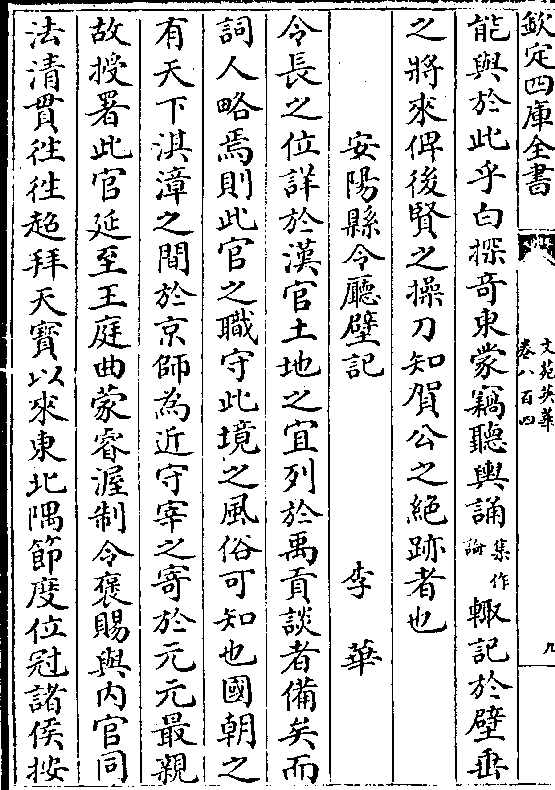 欽定四庫全書
文苑英華
卷八百四
九
能與於此乎白探奇東蒙竊聽輿誦集作論輙記於壁垂
之將來俾後賢之操刀知賀公之絶跡者也
安陽縣令廳壁記 李華
令長之位詳於漢官土地之宜列於禹貢談者備矣而
詞人略焉則此官之職守此境之風俗可知也國朝之
有天下淇漳之間於京師為近守宰之寄於元元最親
故授署此官延至王庭曲蒙睿渥制令褒賜與内官同
法清貫徃徃超拜天寳以來東北隅節度位冠諸侯按